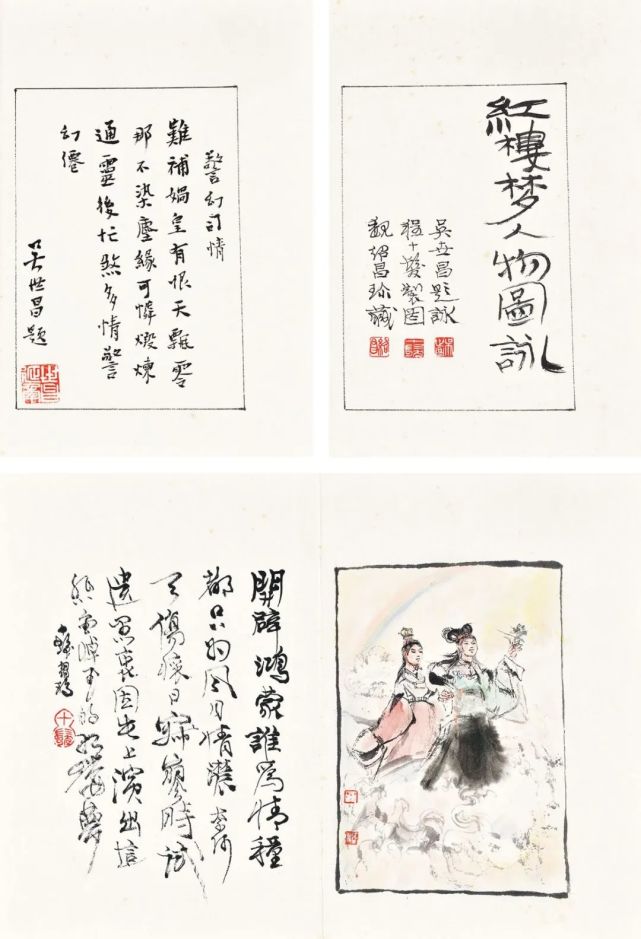 紅樓梦人物圖詠
吳世昌題詠
程十髮製图
魏紹昌珍藏
警幻司情
難補媧皇有恨天飄零
那不染塵緣可憐煅煉
通靈後忙煞多情警
幻僊
吴世昌題
開辟鴻蒙誰為情種
都只為風月情濃奈何
天傷懷日寂寥時試
遣愚衷因此上演出這
悲金悼玉的紅樓夢